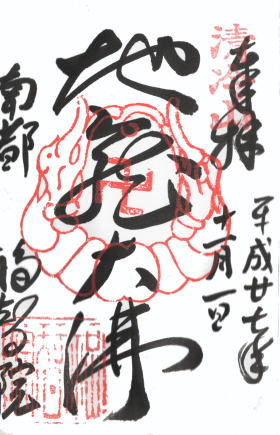 奉拝
平成廿七年
十一月一日
地蔵大佛
南都
福智院